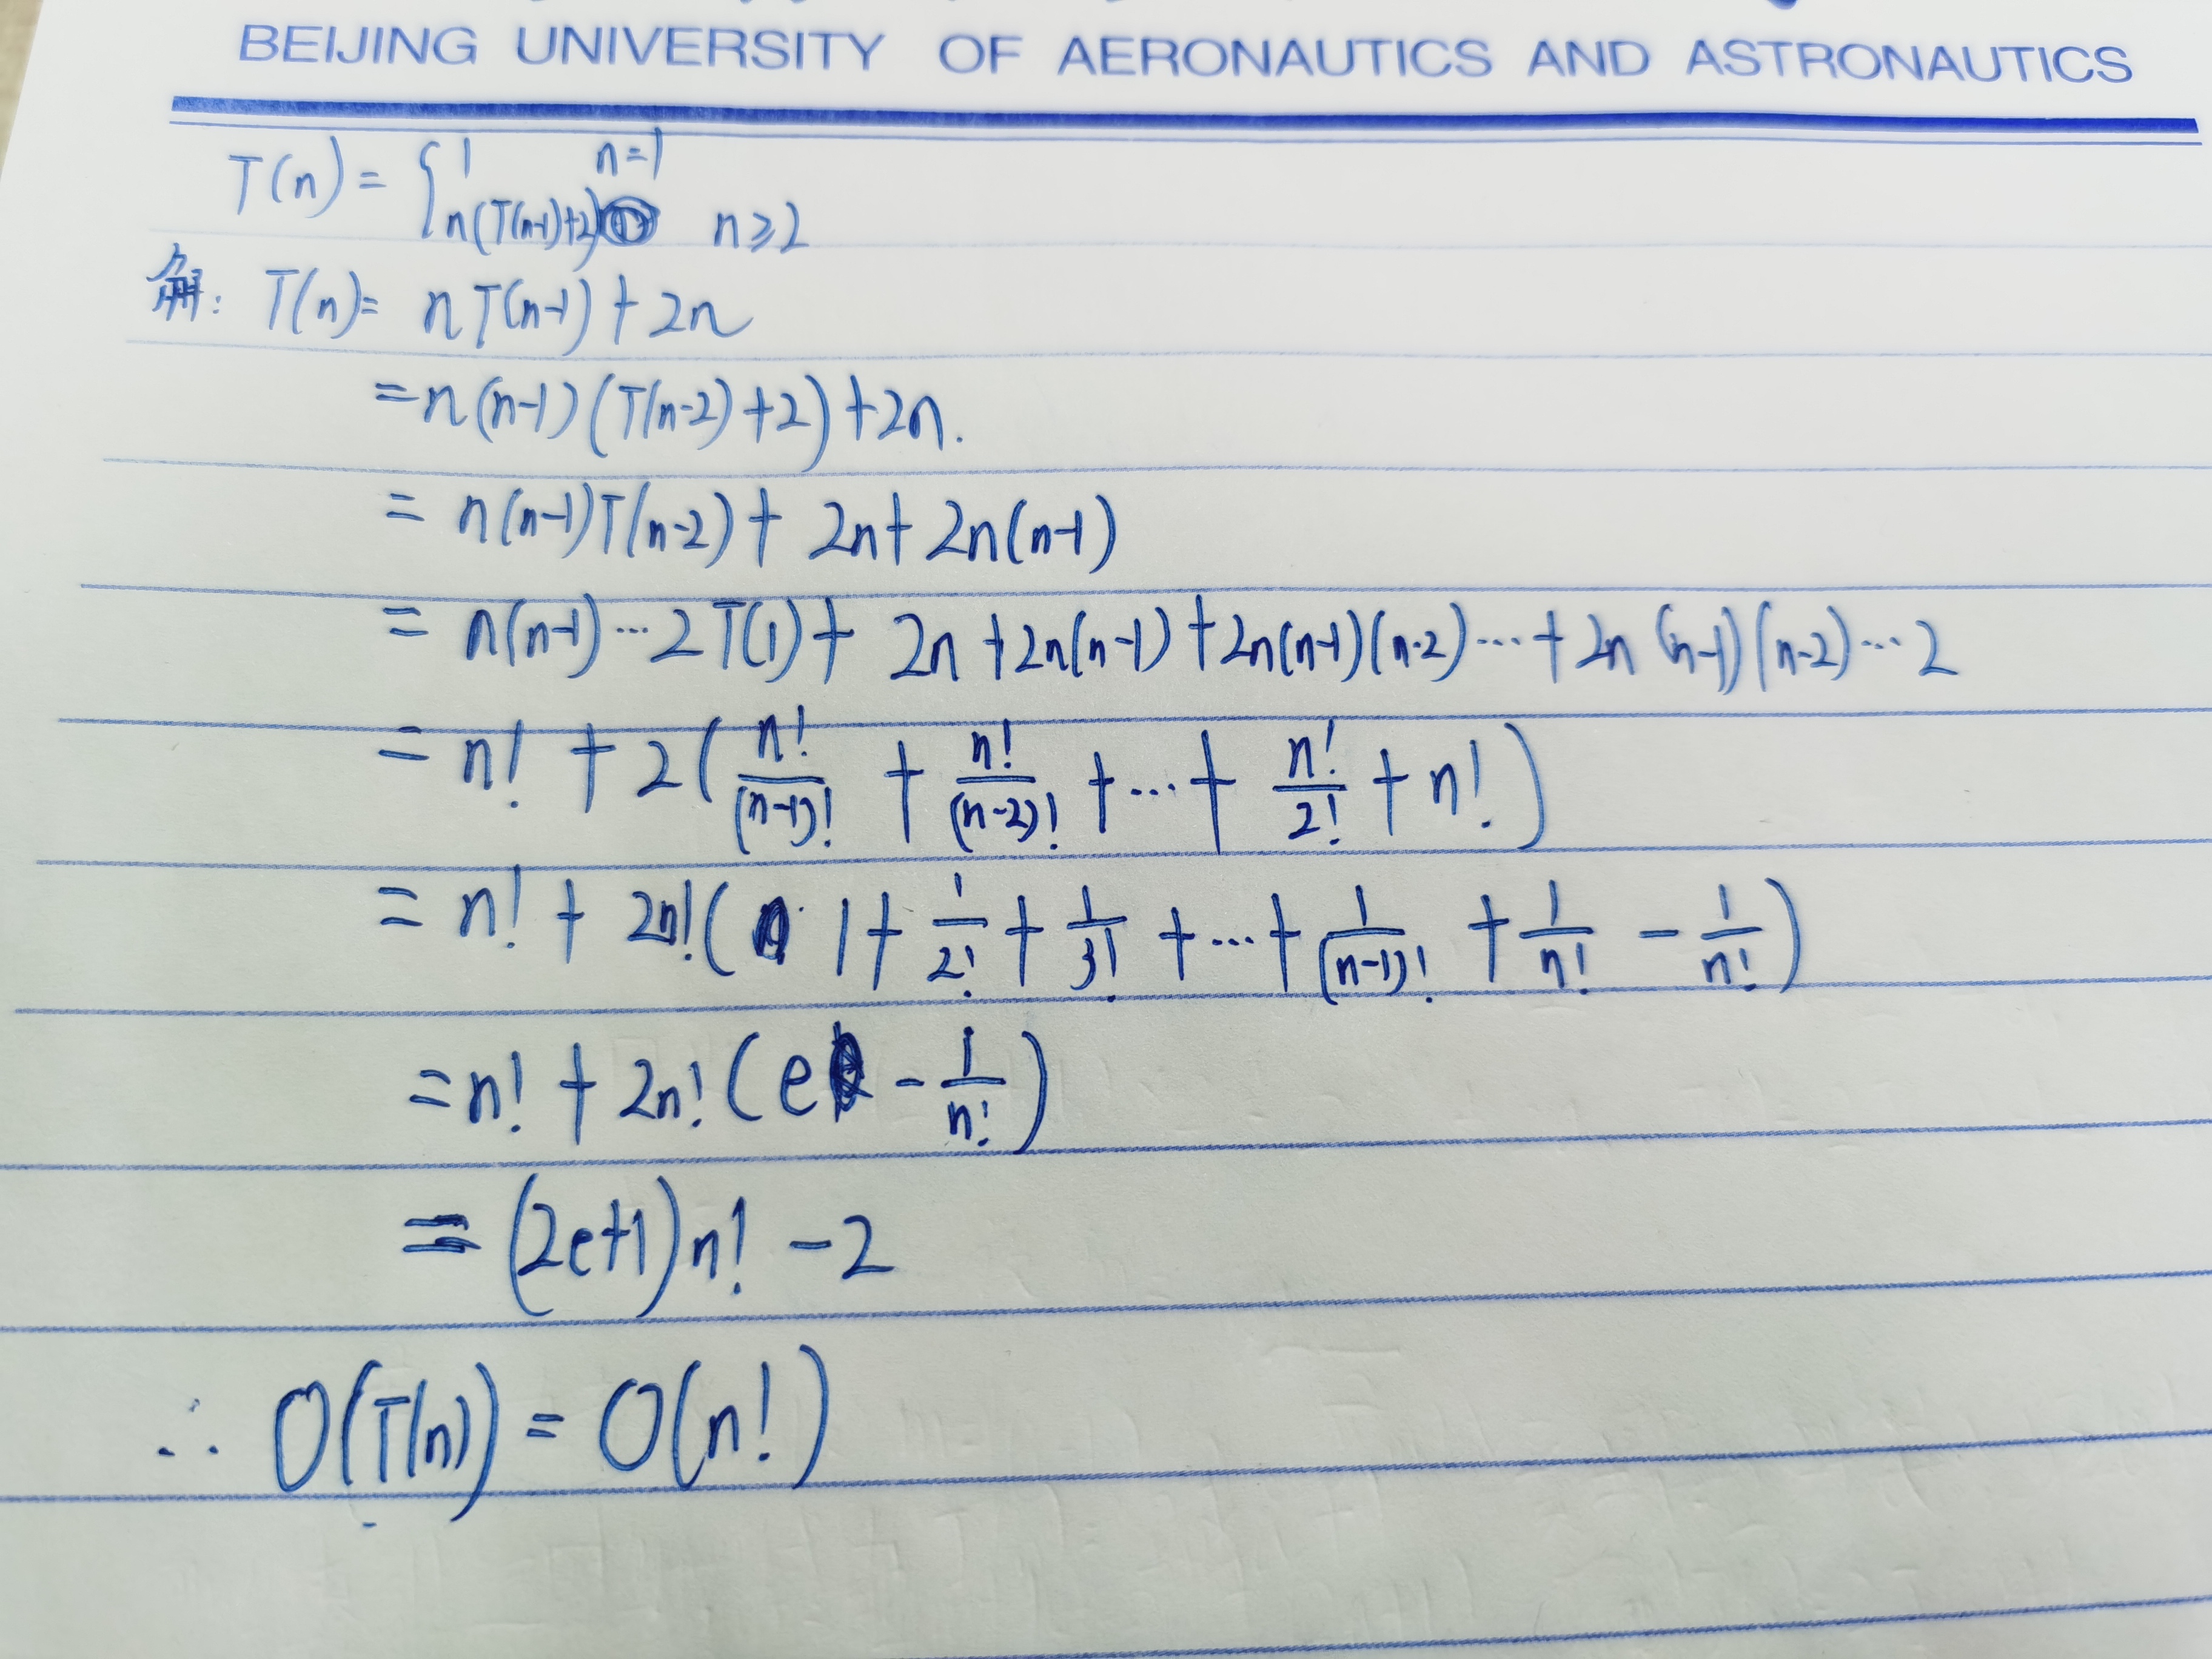 BEIJING UNIVERSITY OF AERONAUTICS AND ASTRONAUTICS
T(n) = { 1 n=1
n(T(n-1)+2) n≥2
解: T(n)= nT(n-1) + 2n
=n(n-1)(T(n-2)+2)+2n.
= n(n-1)T(n-2)+ 2n+ 2n(n-1)
= n(n-1)…2T(1)+ 2n+2n(n-1)+2n(n-1)(n-2)…+2n(n-1)(n-2)…2
= n! + 2(n!/(n-1)! + n!/(n-2)! +…+ n!/2! + n!)
= n! + 2n!(1+ 1/2! + 1/3! +…+ 1/(n-1)! + 1/n! - 1/n!)
=n! + 2n!(e - 1/n!)
= (2e+1)n! -2
∴ O(T(n)) = O(n!)